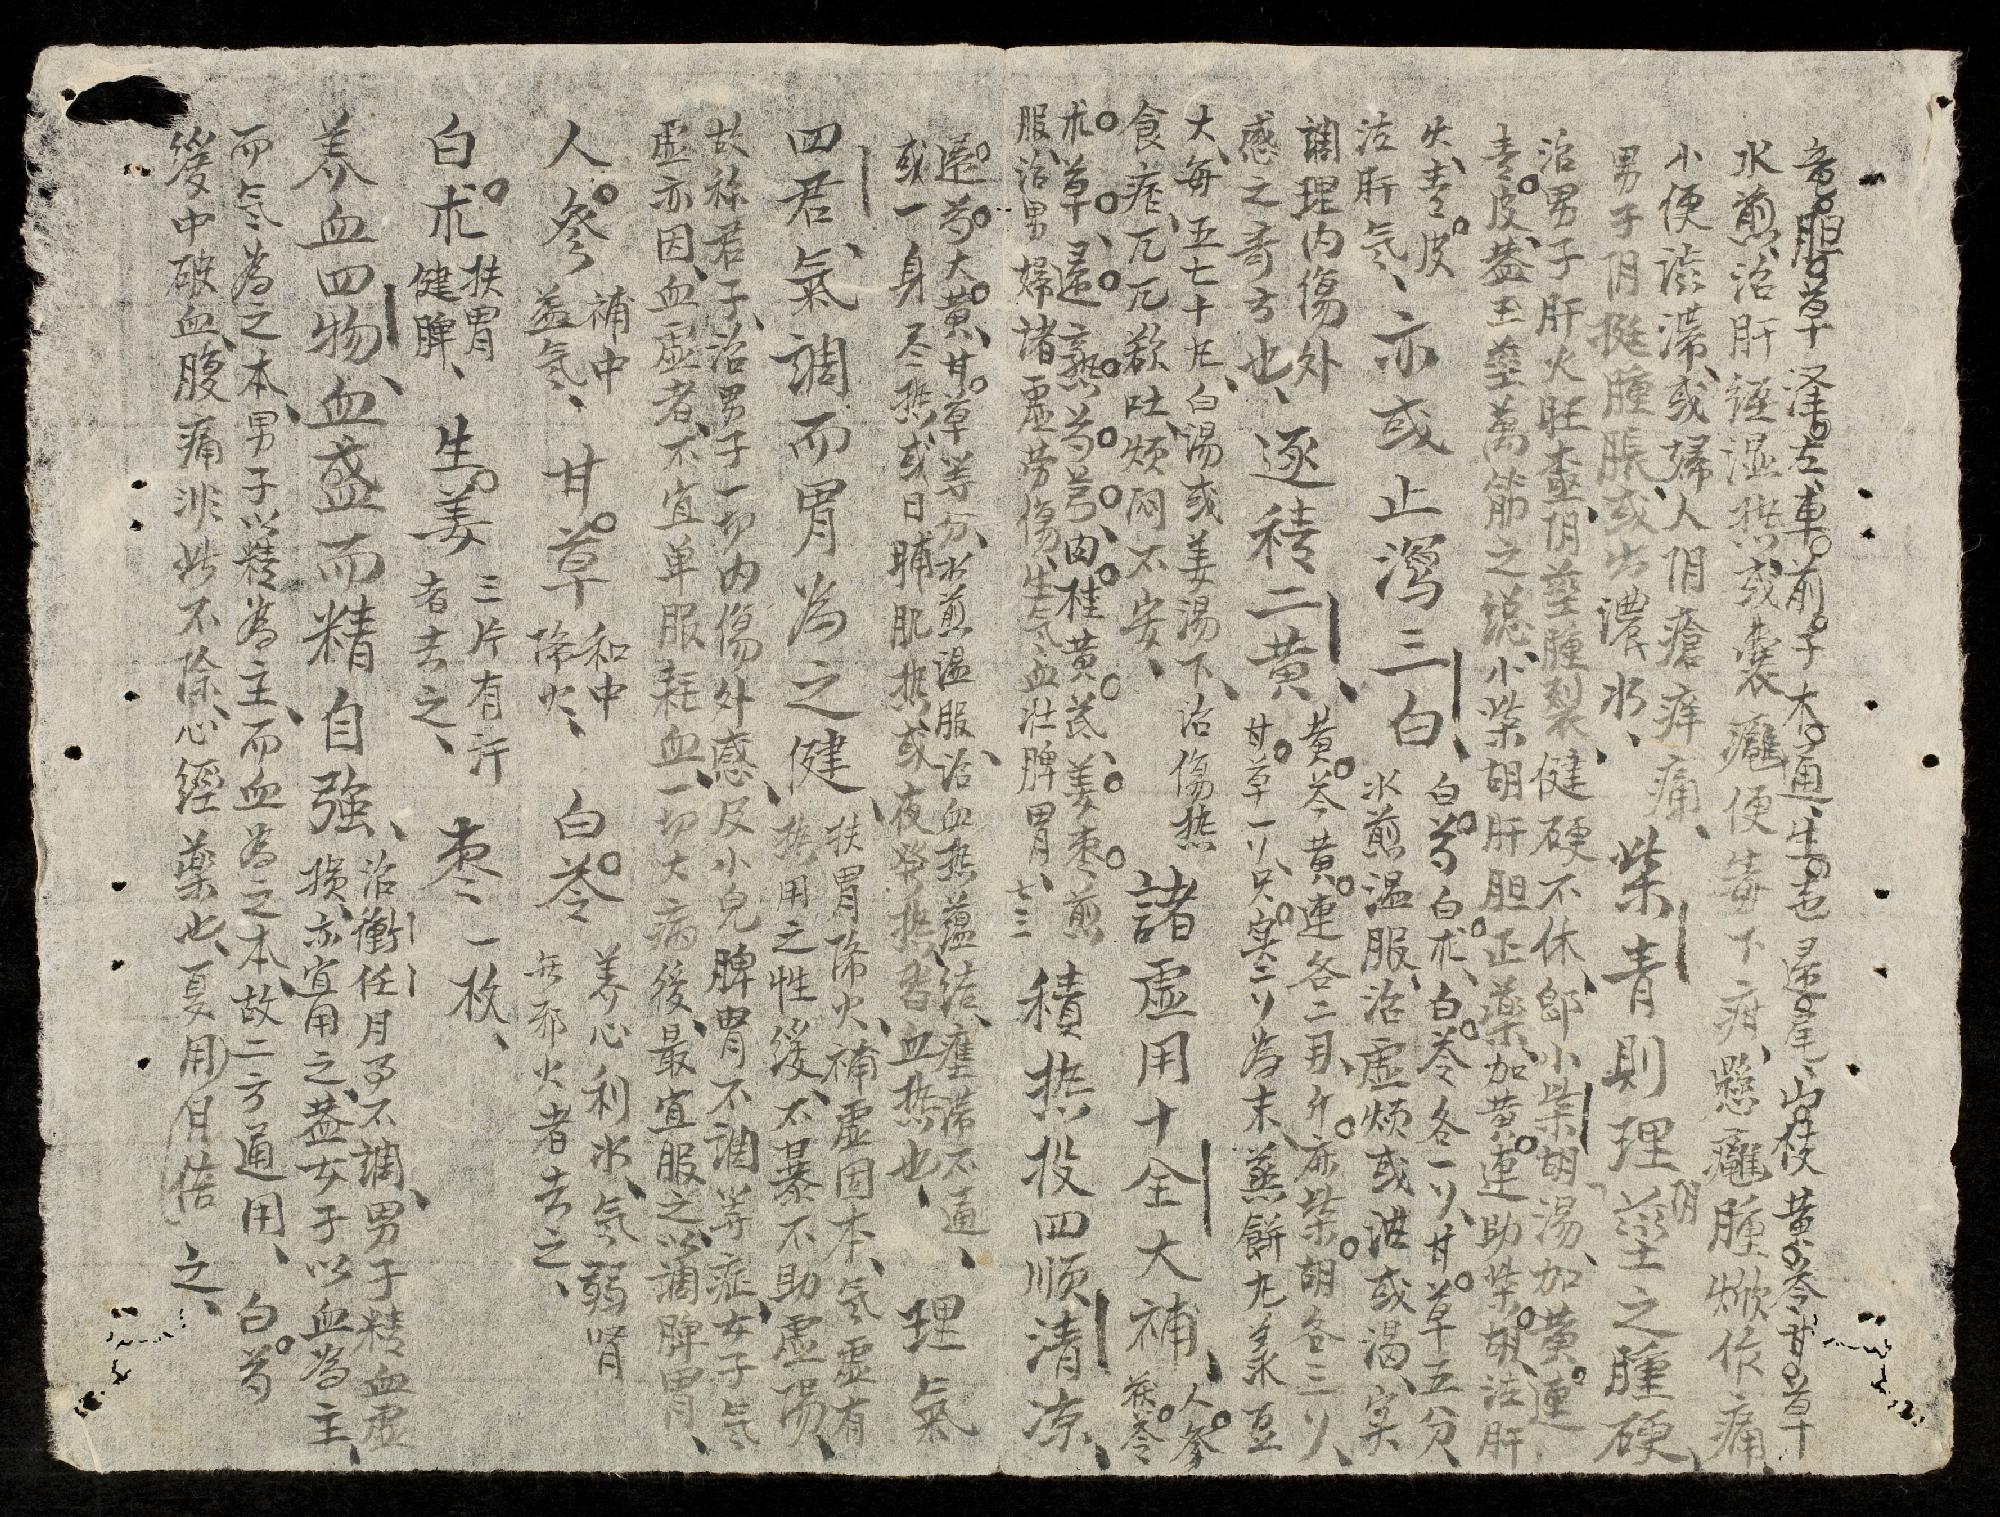 竜胆草泽左車前子木通生芐歸尾山枝黄芩甘草
水煎治肝經湿热或囊癰便毒下疳懸癰腫焮作痛
小便澁滞或婦人阴瘡痒痛
男子阴挺腫脹或出濃水、 柴青則理阴莖之腫硬
治男子肝火旺盛阴莖腫裂健硬不休卽小柴胡湯加黄連
青皮盖玉莖萬筋之総小柴胡肝胆正藥加黄連助柴胡泣肝
火青皮
泣肝氣、亦或止瀉三白、白芍白朮白苓各一リ甘草五分
水煎温服治虚煩或泄或渴实
調理内傷外
感之奇方也、逐積二黄、黄芩黄連各二月升麻柴胡各三リ
甘草一リ只实二リ為末蒸餅丸菉豆
大每五七十丸白湯或姜湯下治傷热
食痞兀兀欲吐煩悶不安、 諸虚用十全大補、人參茯苓
朮草歸熟芍芎肉桂黄芪姜枣煎
服治男婦諸虚勞傷生氣血壮脾胃、 積热投四順清凉、
歸芍大黄甘草等分水煎温服治血热蕴結壅滞不通、
或一身尽热或日晡肌热或夜發热皆血热也、 理氣
四君氣調而胃為之健、扶胃除火補虚固本氣虚有
热用之性緩不暴不助虚陽
故称君子治男子一切内傷外感及小兒脾胃不調等症女子氣
虚亦因血虚者不宜单服耗血一切大病後最宜服之以調脾胃、
人參 補中益氣、 甘草 和中降火、 白苓 养心利水氣弱肾
无邪火者去之、
白朮 扶胃健脾、 生姜 三片有汗者去之、 枣二一枚、
养血四物血盛而精自強、治衝任月事不調男子精血虚
損亦宜用之盖女子以血為主
而氣為之本男子以精為主而血為之本故二方通用、 白芍
緩中破血腹痛非此不除心經藥也夏用月倍之、